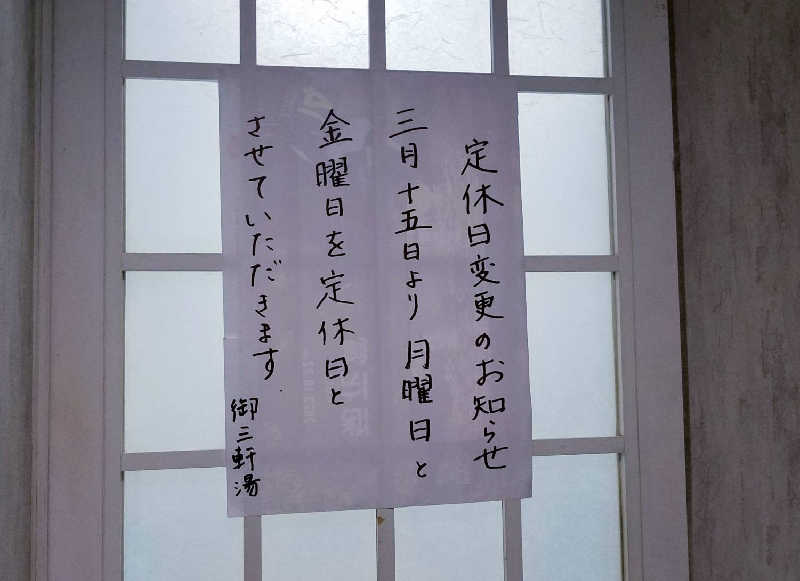 定休日変更のお知らせ
三月十五日より月曜日と
金曜日を定休日と
させていただきます.
御三軒湯